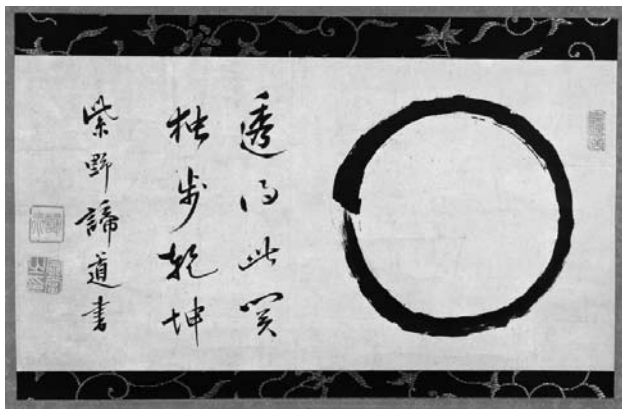 透得此関
独歩乾坤
紫野諦道書